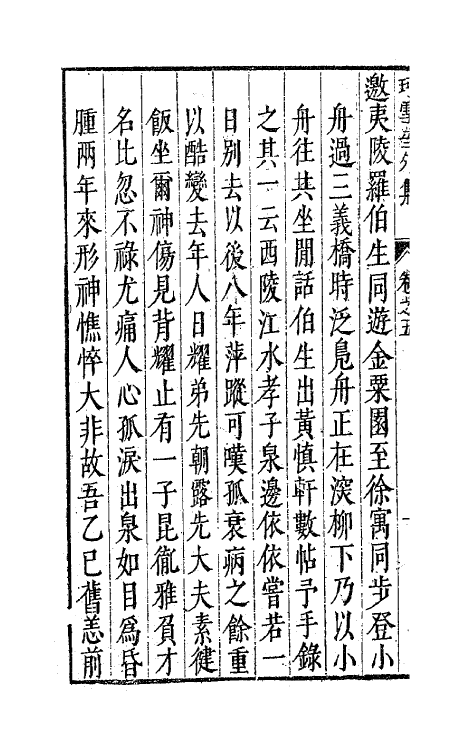 珂雪齋外集　卷之五
邀夷陵羅伯生同遊金粟園至徐寓同步登小
舟過三義橋時泛鳬舟正在深柳下乃以小
舟往其坐閒話伯生出黃慎軒數帖予手錄
之其一云西陵江水孝子泉邊依依嘗若一
日別去以後八年萍蹤可嘆孤衰病之餘重
以酷孌去年人日耀弟先朝露先大夫素健
飯坐爾神傷見背耀止有一子昆㣧雅負才
名比忽不祿尤痛人心孤淚出泉如目爲昏
腫兩年來形神憔悴大非故吾乙巳舊恙前